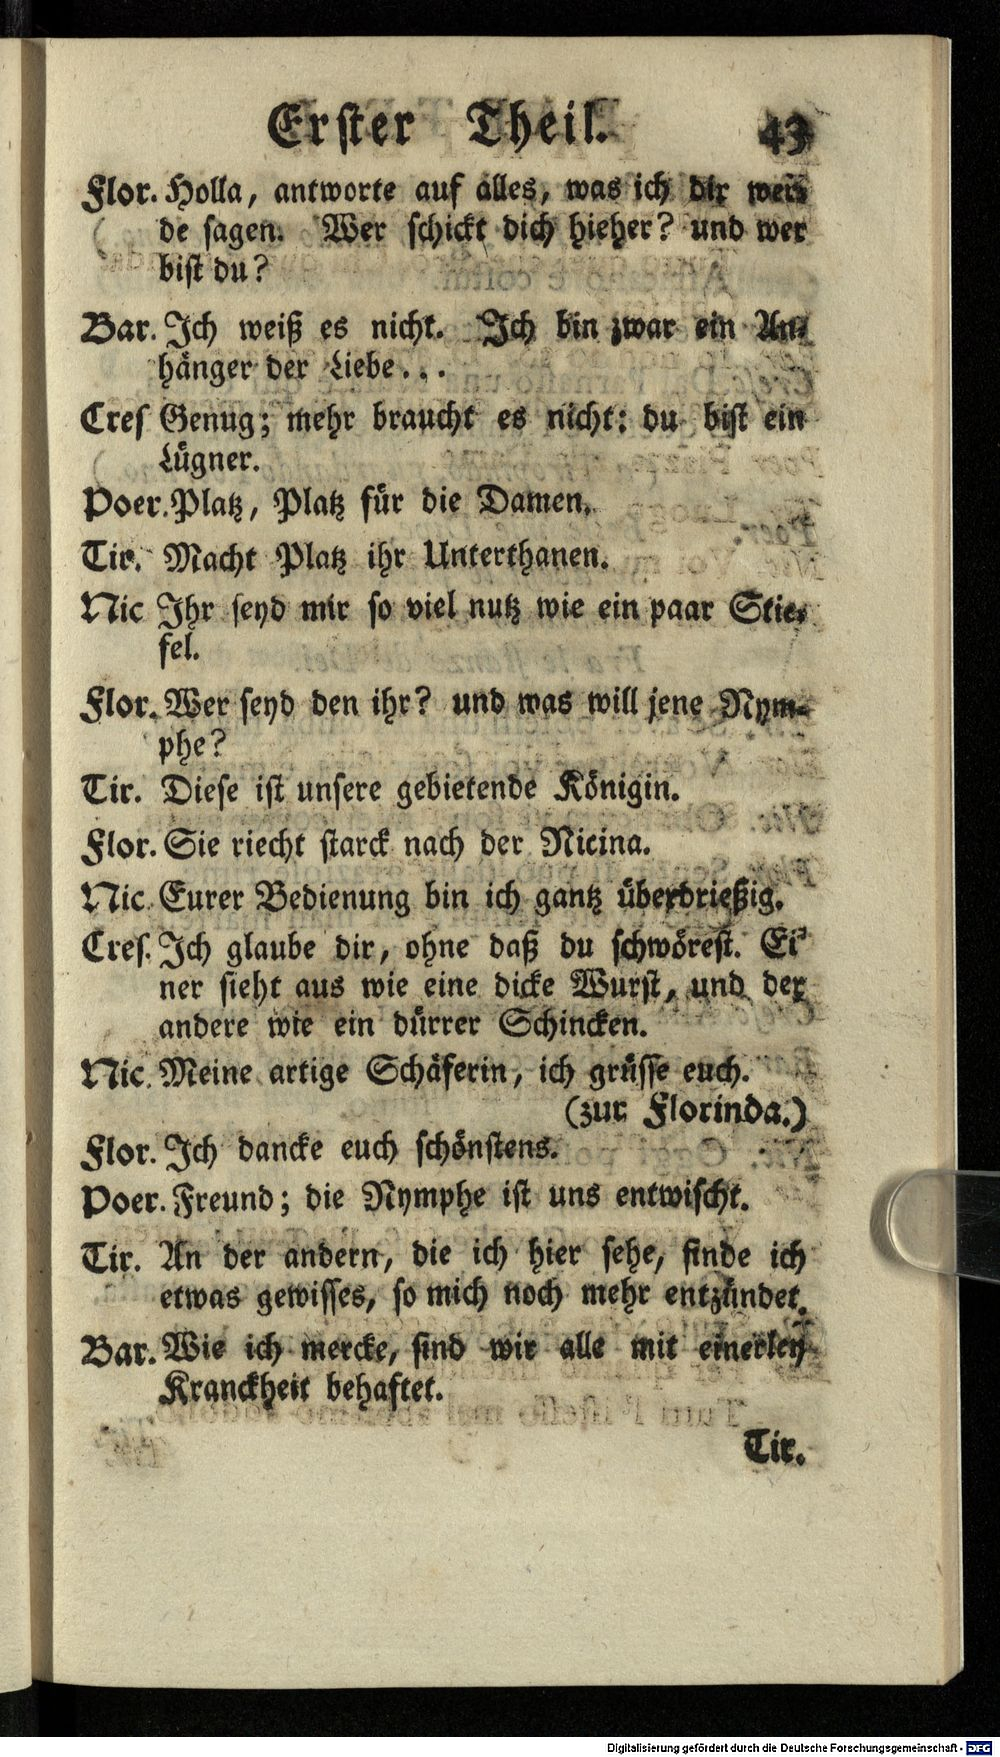 Erster Theil. 43
Flor. Holla, antworte auf alles, was ich dir wer⸗
de sagen. Wer schickt dich hieher? und wer
bist du?
Bar. Ich weiß es nicht. Ich bin zwar ein An⸗
hänger der Liebe...
Cres Genug; mehr braucht es nicht: du bist ein
Lügner.
Poer. Platz, Platz für die Damen.
Tir. Macht Platz ihr Unterthanen.
Nic Ihr seyd mir so viel nutz wie ein paar Stie⸗
fel.
Flor. Wer seyd den ihr? und was will jene Nym⸗
phe?
Tir. Diese ist unsere gebietende Königin.
Flor. Sie riecht starck nach der Nicina.
Nic. Eurer Bedienung bin ich gantz überdrießig.
Cres. Ich glaube dir, ohne daß du schwörest. Ei⸗
ner sieht aus wie eine dicke Wurst, und der
andere wie ein dürrer Schincken.
Nic. Meine artige Schäferin, ich grüsse euch.
(zur Florinda.)
Flor. Ich dancke euch schönstens.
Poer. Freund; die Nymphe ist uns entwischt.
Tir. An der andern, die ich hier sehe, finde ich
etwas gewisses, so mich noch mehr entzündet.
Bar. Wie ich mercke, sind wir alle mit einerley
Kranckheit behaftet.
Tir.
Digitalisierung gefördert durch die Deutsche Forschungsgemeinschaft - DFG